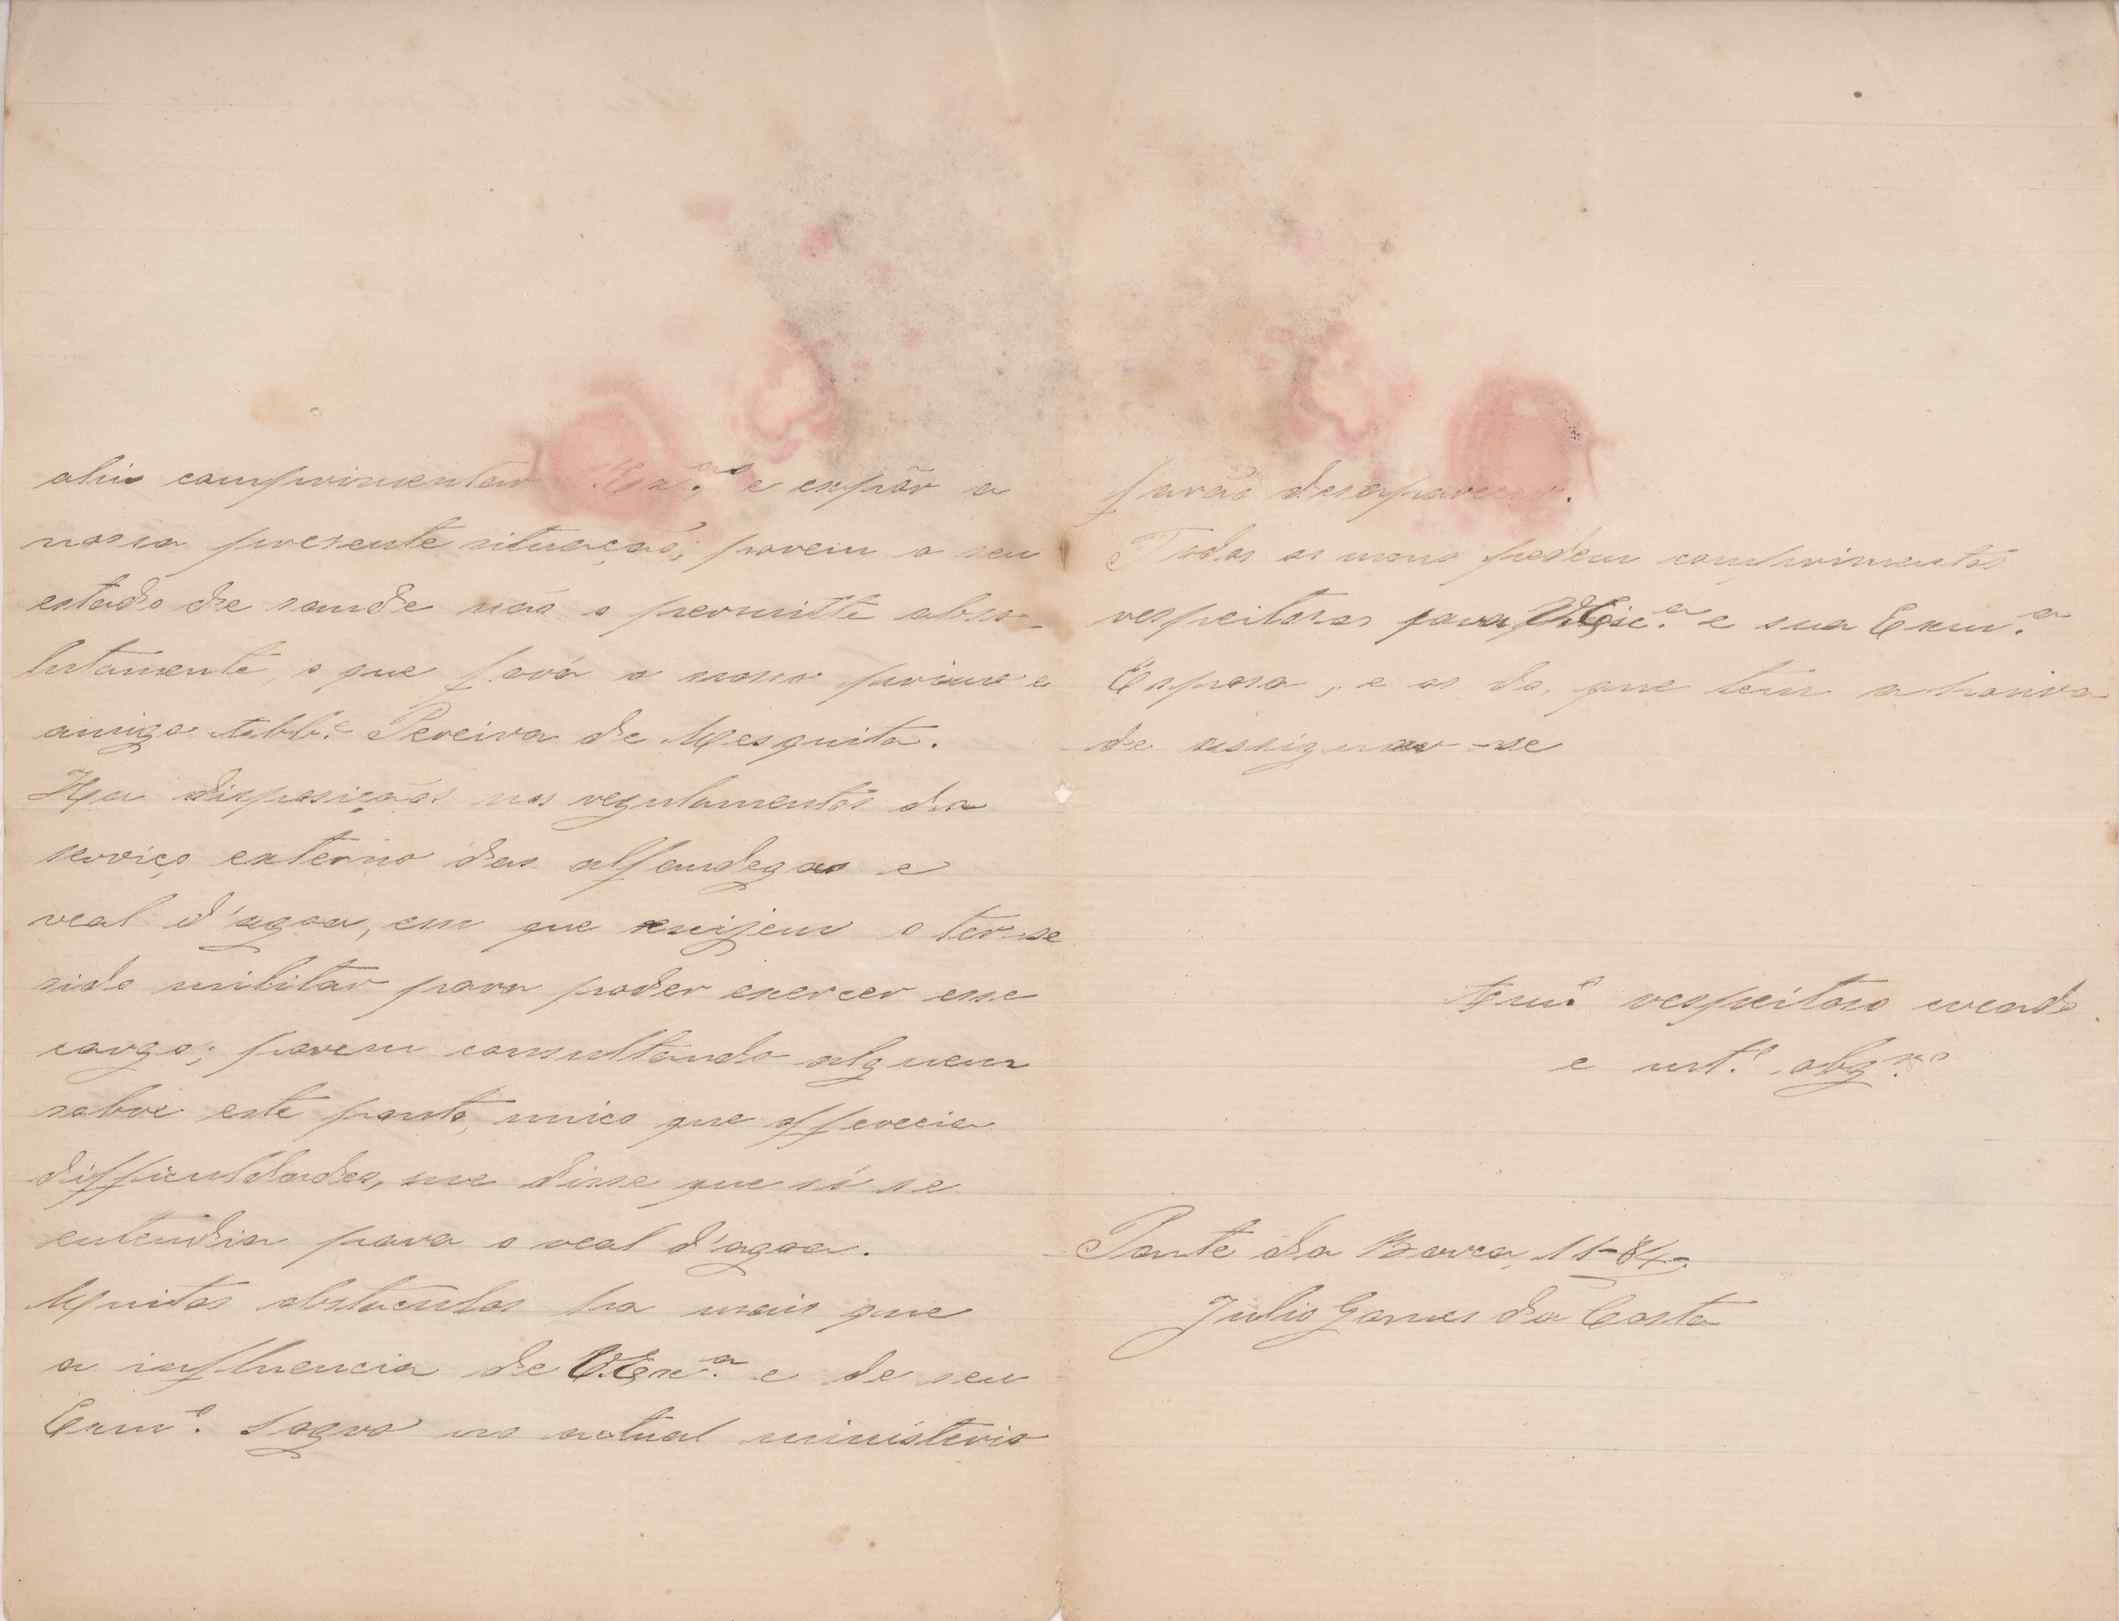 ahi comprimentar V. Ex.ªs e expôr a
nossa presente situação, porem o seu
estado de saude não o permitte abso-
lutamente, o que fará o nosso primo e
amigo Pereira de Mesquita.
Ha disposições nos regulamentos do
serviço externo das alfandegas e
real d'agoa, em que exijem o ter-se
sido militar para poder exercer esse
cargo; porem consultando alguem
sobre este ponto, unico que offerecia
difficuldades, me disse que só se
entendia para o real d'agoa.
Muitos obstaculos ha mais que
a influencia de V. Ex.ª e de seu
Exm.º Sogro no actual ministerio
farão desaparecer.
Todos os meus pedem comprimentos
respeitosos para V. Exc.ª e sua Exm.ª
Esposa, e os do, que tem a honra
de assignar-se
respeitoso creado
e mt.º obg.mo
Ponte da Barca, 11-84
Julio Gomes da Costa